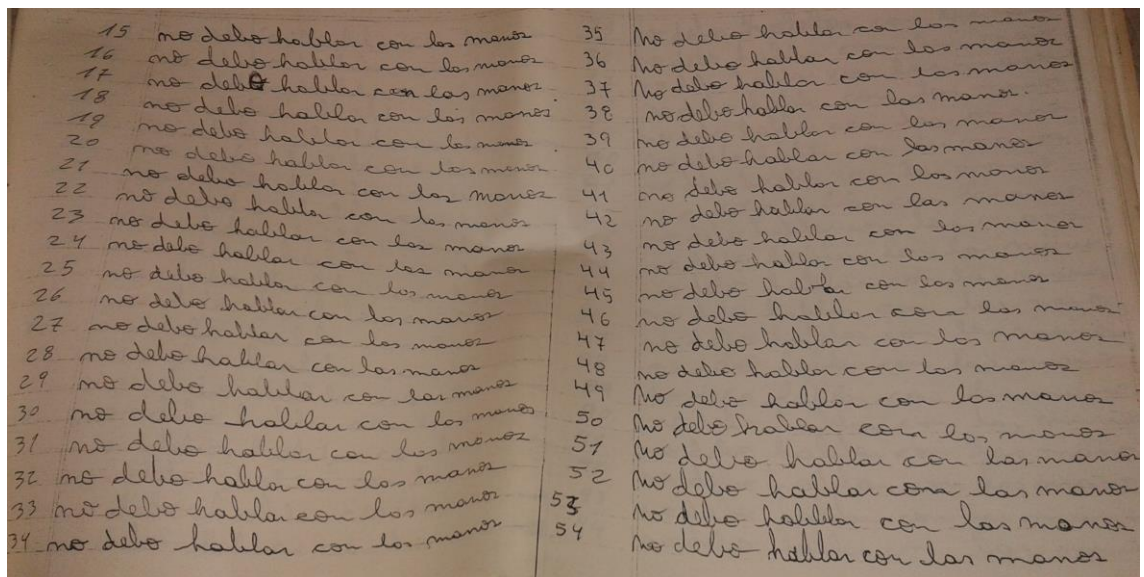 15 no debo hablar con las manos
16 no debo hablar con las manos
17 no debo hablar con las manos
18 no debo hablar con las manos
19 no debo hablar con las manos
20 no debo hablar con las manos
21 no debo hablar con las manos
22 no debo hablar con las manos
23 no debo hablar con las manos
24 no debo hablar con las manos
25 no debo hablar con las manos
26 no debo hablar con las manos
27 no debo hablar con las manos
28 no debo hablar con las manos
29 no debo hablar con las manos
30 no debo hablar con las manos
31 no debo hablar con las manos
32 no debo hablar con las manos
33 no debo hablar con las manos
34 no debo hablar con las manos
35 No debo hablar con las manos
36 No debo hablar con las manos
37 No debo hablar con las manos
38 no debo hablar con las manos.
39 no debo hablar con las manos
40 no debo hablar con las manos
41 no debo hablar con las manos
42 no debo hablar con las manos
43 no debo hablar con las manos
44 no debo hablar con las manos
45 no debo hablar con las manos
46 no debo hablar con las manos
47 no debo hablar con las manos
48 no debo hablar con las manos
49 No debo hablar con las manos
50 No debo hablar con las manos
51 No debo hablar con las manos
52 No debo hablar con las manos
53 No debo hablar con las manos
54 No debo hablar con las manos